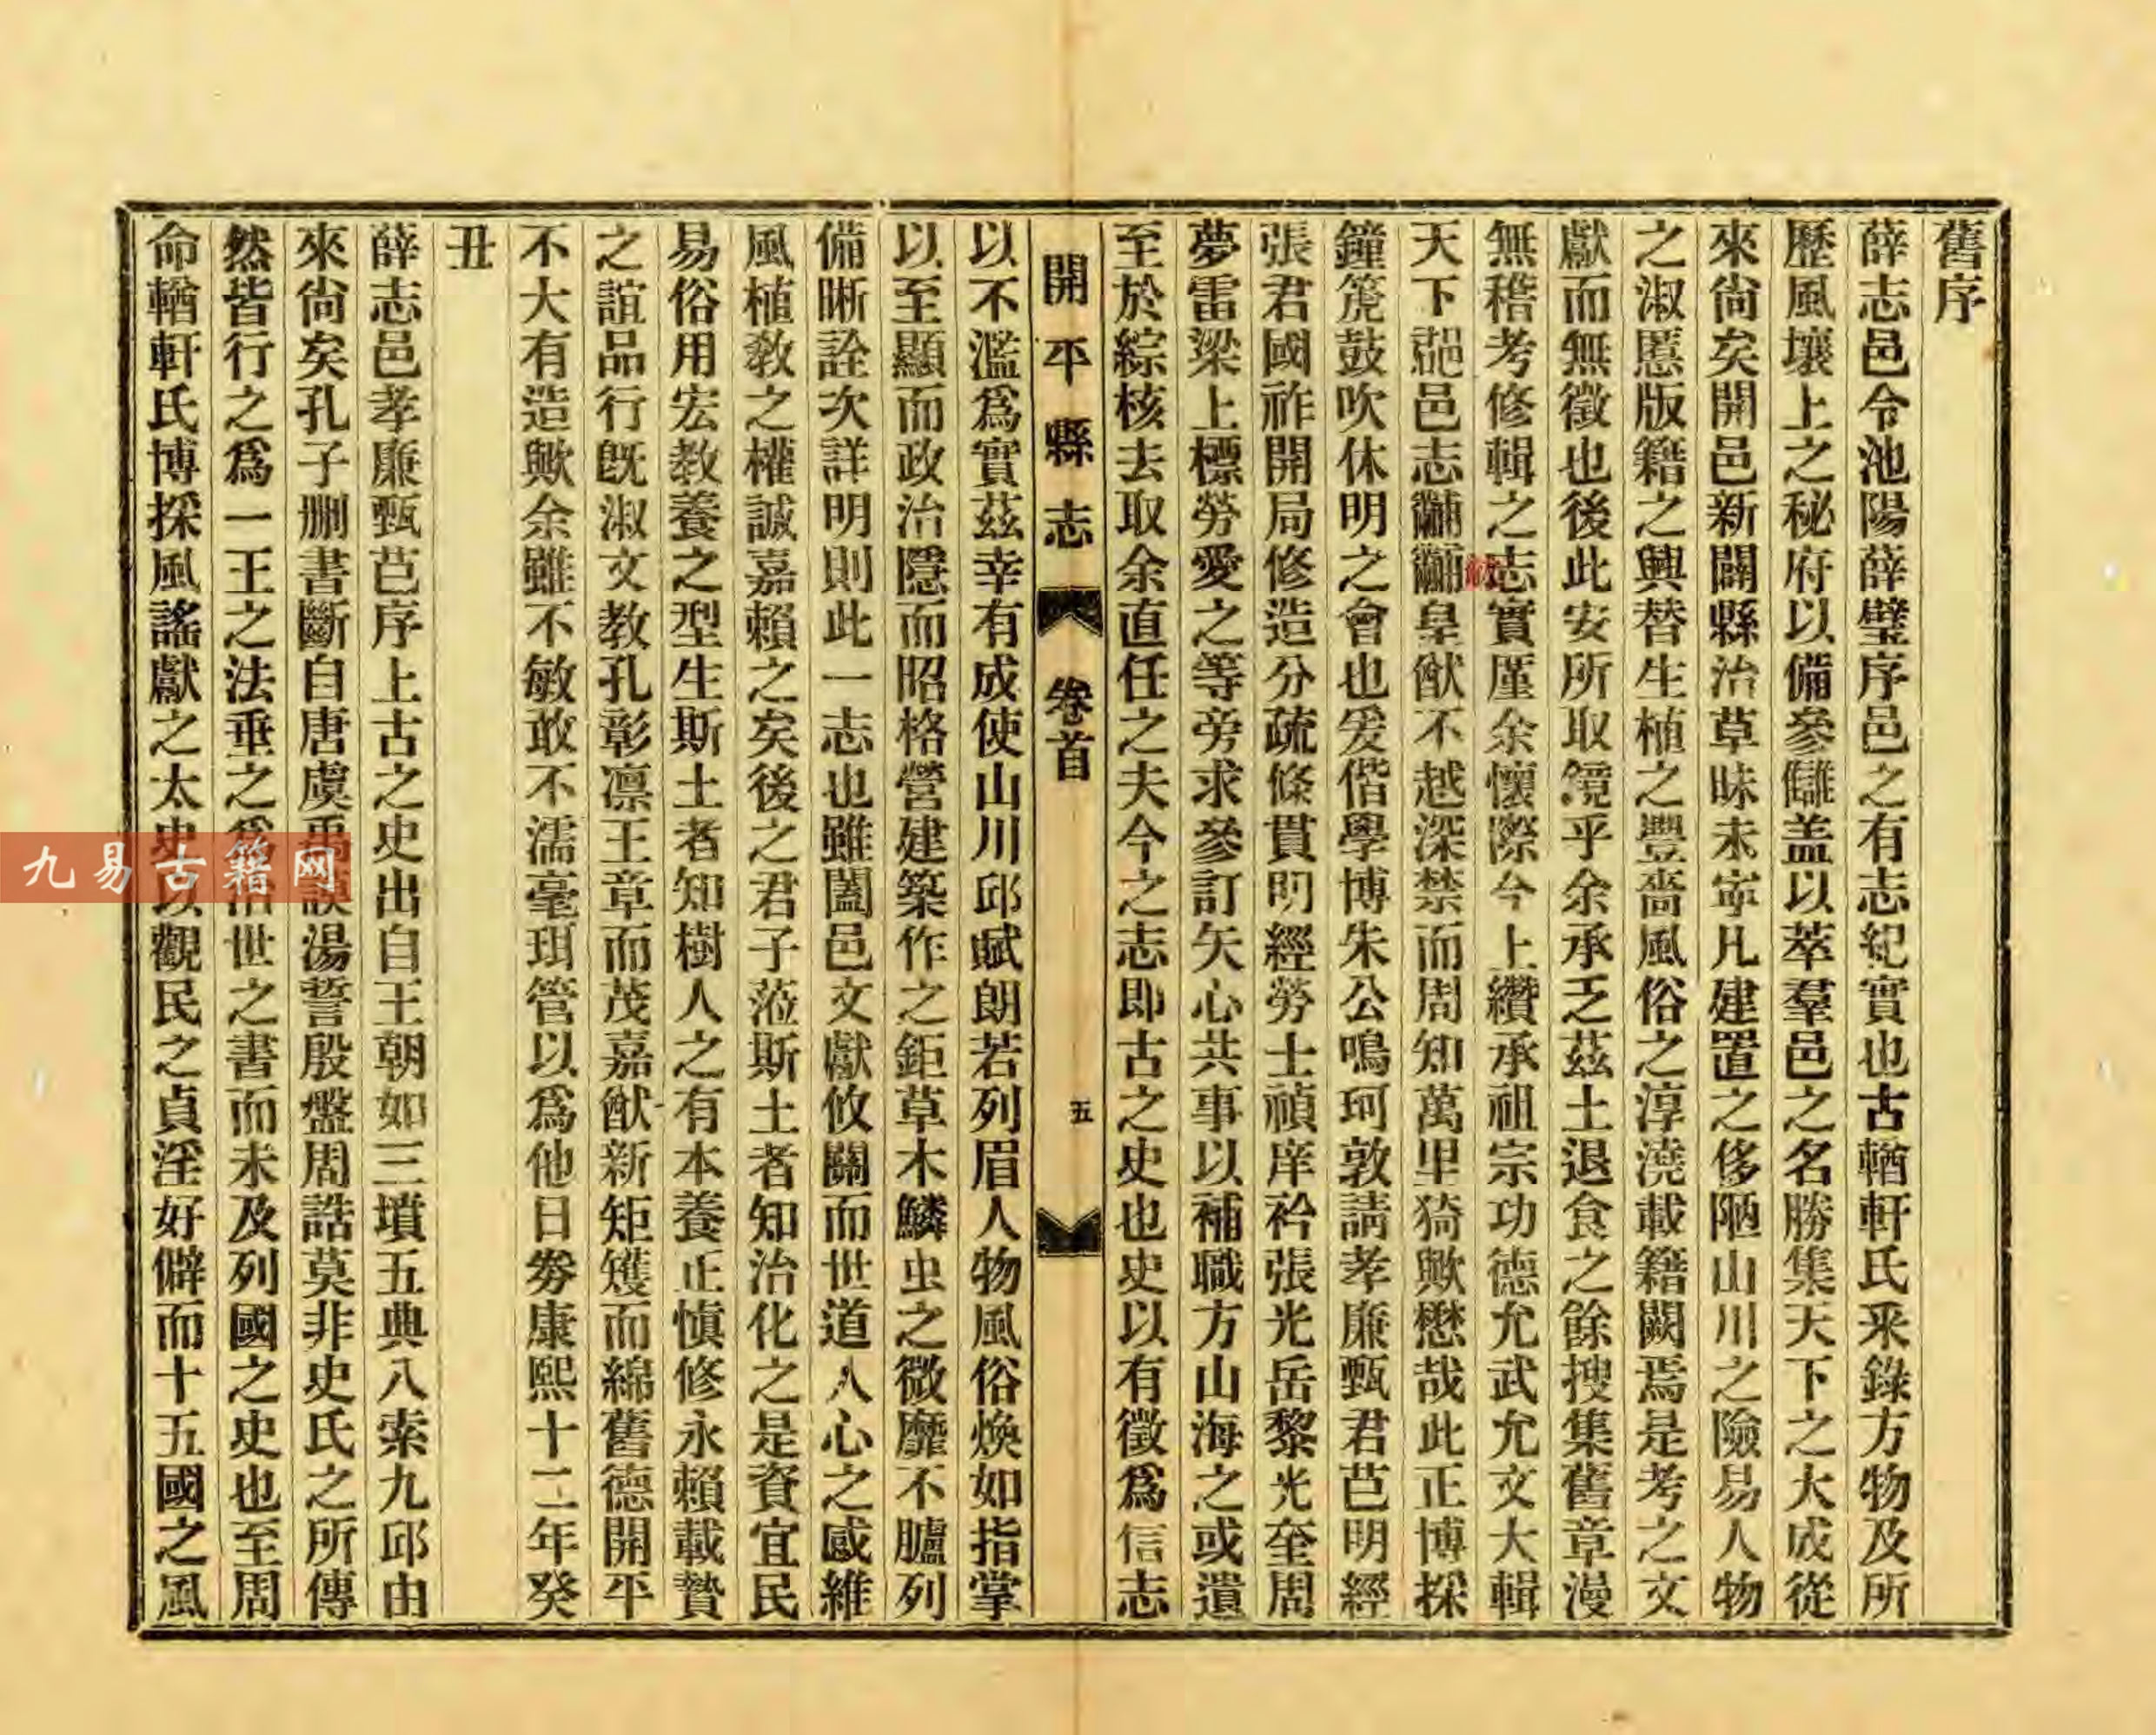 舊序
薛志邑令池陽薛璧序邑之有志紀實也古輶軒氏釆錄方物及所
歷風壤上之秘府以備參讎盖以萃羣邑之名勝集天下之大成從
來尙矣開邑新闢縣治草昧未寧凡建置之侈陋山川之險易人物
之淑慝版籍之興替生植之豐嗇風俗之淳澆載籍闕焉是考之文
獻而無徵也後此安所取鏡乎余承乏茲土退食之餘搜集舊章漫
無稽考修輯之志實厪余懷際今上纘承祖宗功德允武允文大輯
天下邑志黼黻皇猷不越深禁而周知萬里猗歟懋哉此正博採
鐘簴鼓吹休明之會也爰偕學博朱公鳴珂敦請孝廉甄君芑明經
張君國祚開局修造分疏條貫明經勞士禎庠衿張光岳黎光奎周
夢雷梁上標勞愛之等旁求參訂矢心共事以補職方山海之或遺
至於綜核去取余直任之夫今之志即古之史也史以有徵爲信志
開平縣志
卷首
五
以不濫爲實茲幸有成使山川邱賦朗若列眉人物風俗煥如指掌
以至顯而政治隱而昭格營建築作之鉅草木鱗虫之微靡不臚列
備晰詮次詳明則此一志也雖闔邑文獻攸關而世道人心之感維
風植教之權誠嘉賴之矣後之君子蒞斯土者知治化之是資宜民
易俗用宏教養之型生斯土者知樹人之有本養正愼修永賴載贄
之誼品行旣淑文教孔彰凛王章而茂嘉猷新矩矱而綿舊德開平
不大有造歟余雖不敏敢不濡毫珥管以爲他日劵康熙十二年癸
丑
薛志邑孝廉甄芑序上古之史出自王朝如三墳五典八索九邱由
來尙矣孔子刪書斷自唐虞禹謨湯誓殷盤周誥莫非史氏之所傳
然皆行之爲一王之法垂之爲治世之書而未及列國之史也至周
命輶軒氏博採風謠獻之太史以觀民之貞淫好僻而十五國之風
九易古籍网